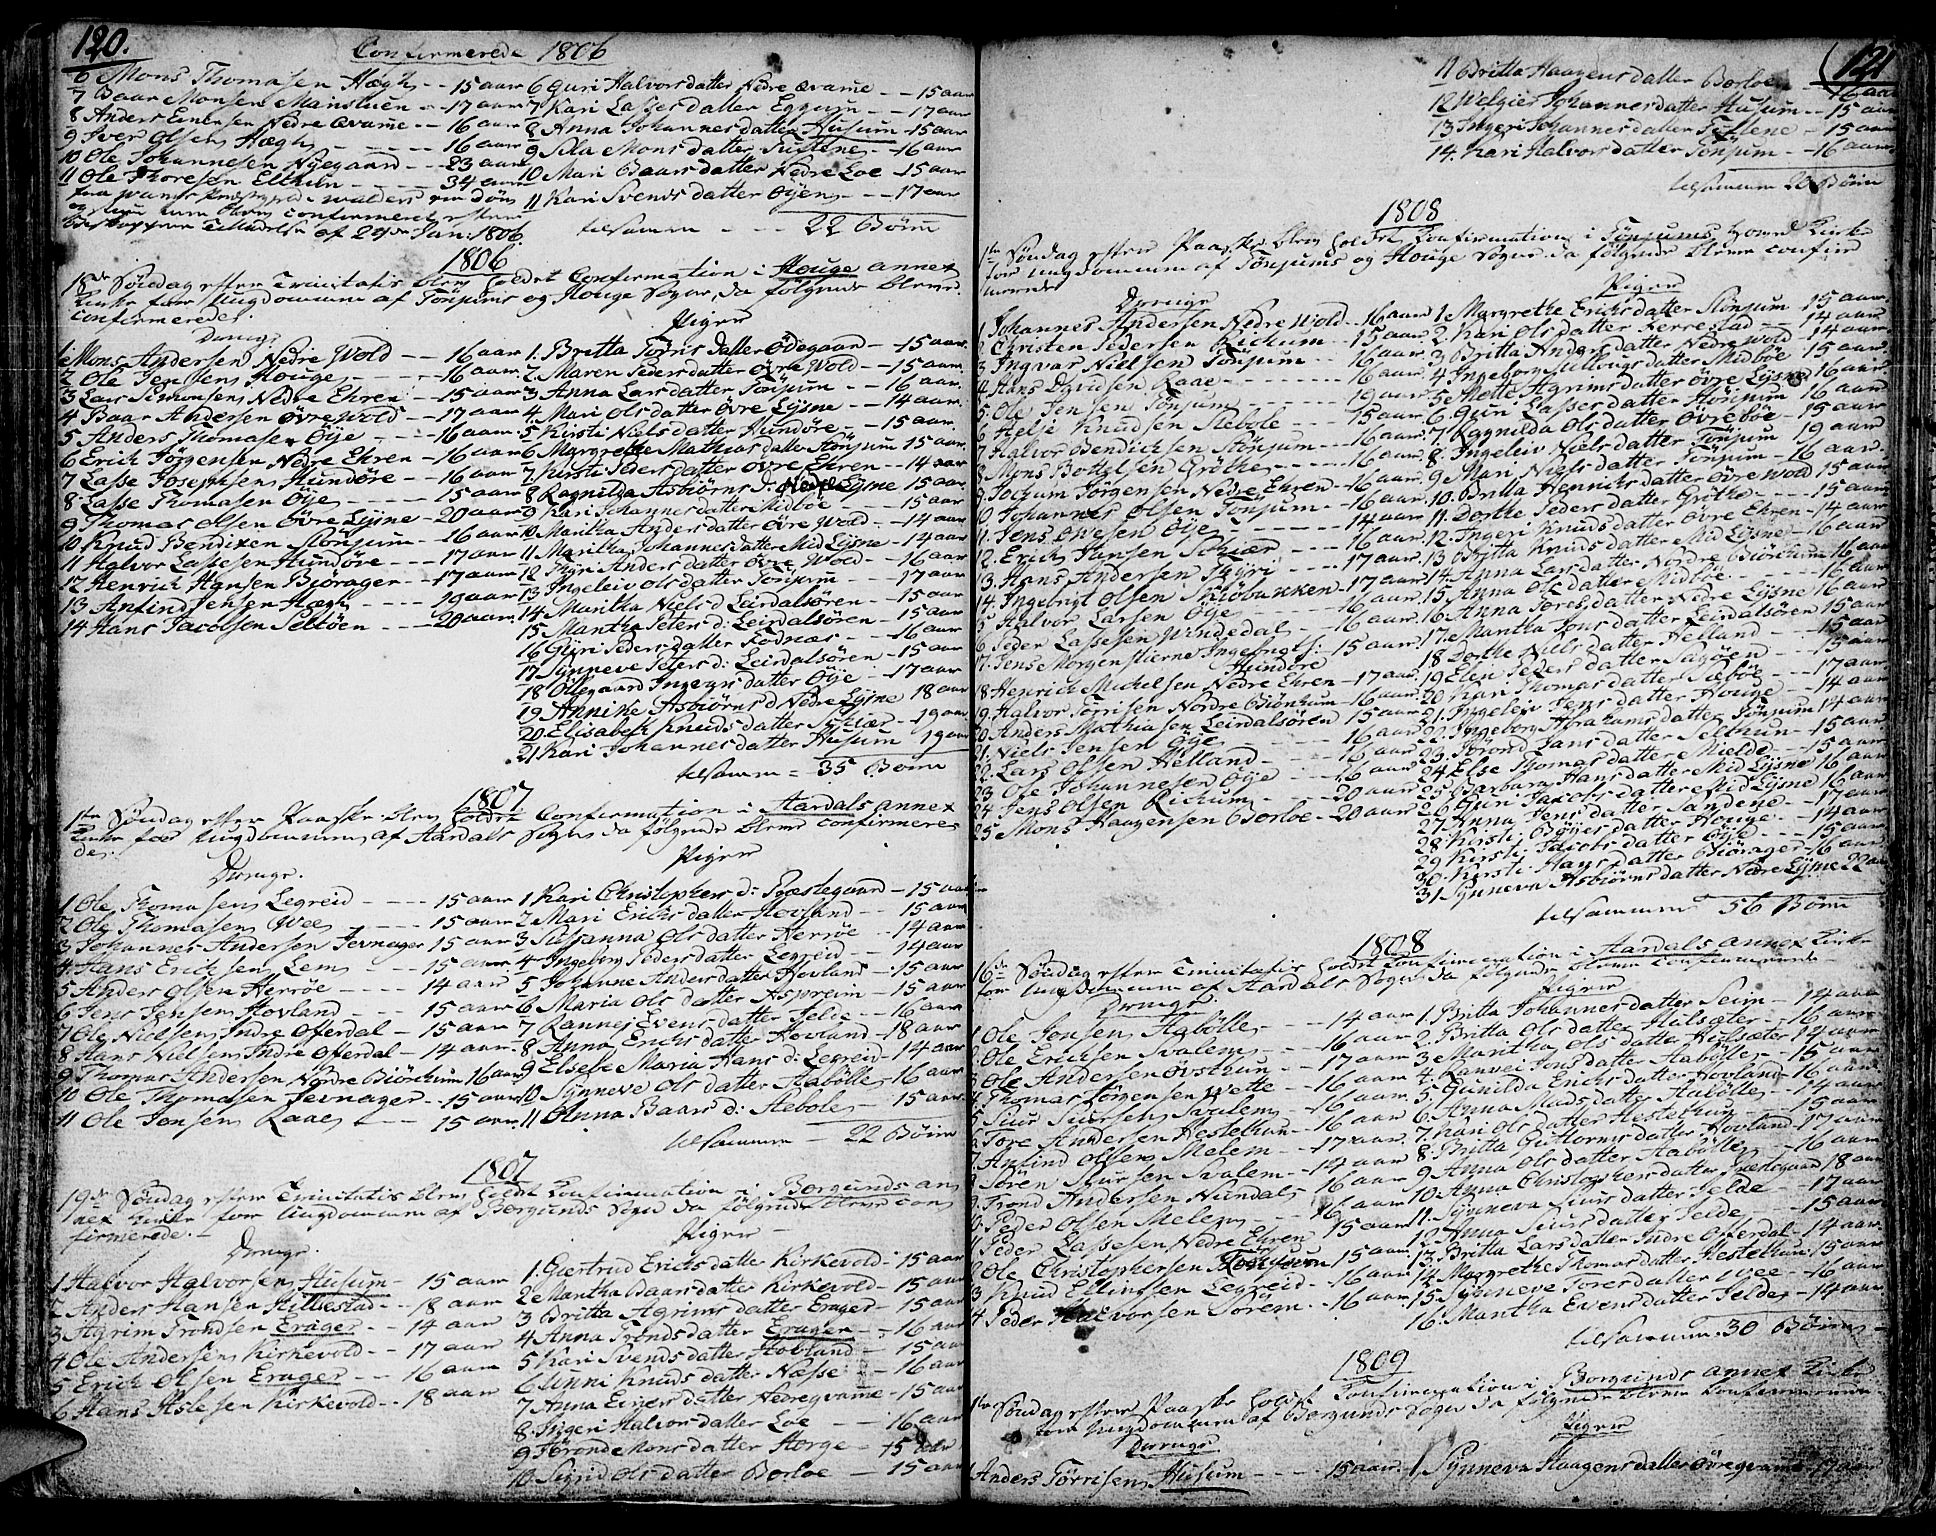 120.
Confirmerede 1806
6 Mons Thomasen Hægh - - 15 aar
7 Baar Monsen Manstuen - - 17 aar
8 Anders Nedre Qvame - - 16 aar
9 Iver Olsen Hægh - - 16 aar
10 Ole Johannesen Nyegaard - - 23 aar
11 Ole Thoresen - - 34 aar
confirmeret efter
Tilladelse af 29de Jan: 1806.
6 Guri Halvorsdatter Nedre Qvame - - 15 aar
7 Kari Lassesdatter Eggum - - 17 aar
8 Anna Johannesdatter Husum - 15 aar
9 Monsdatter - 16 aar
10 Mari Baarsdatter Nedre Loe - 15 aar
11 Kari Svendsdatter Øyen - - 17 aar
tilsamen - - - 22 Børn
1806
18de Søndag efter Trinitatis blev holdet Confirmation i Houge annex
Kirke for Ungdommen af Tønjums og Houge Sogne, da følgende bleve
confirmerede.
Drenge
1 Mons Andersen Nedre Wold - - 16 aar
2 Ole Jensen Houge - - 16 aar
3 Lars Simonsen Nedre Ehren - 15 aar
4 Baar Andersen Øvre Wold - - 17 aar
5 Anders Thomasen Øye - - - 16 aar
6 Erich Jørgensen Nedre Ehren - 16 aar
7 Lasse Josephsen Hundøre - - 16 aar
8 Lasse Thomasen Øye - - - 15 aar
9 Thomas Olsen Øvre Lysne - 20 aar
10 Knud Bendixen Stønjum - - 16 aar
11 Halvor Lassesen Hundøre - - 17 aar
12 Henrich Hansen Biørager - - 17 aar
13 Anfind Jensen Hægh - - - - 19 aar
14 Hans Jacobsen Seltøen - - - 20 aar
Piger
1. Britta Tørrisdatter Ødegaar - - 15 aar
2. Maren Pedersdatter Øvre Wold - - 15 aar
3 Anna Larsdatter Tønjum - - 16 aar
4. Mari Olsdatter Øvre Lysne - - 14 aar
5 Kirsti Nielsdatter Hundøre - - 15 aar
6 Margrethe Mathiasdatter Stønjum 15 aar
7. Kirsti Pedersdatter Øvre Ehren - - 14 aar
8 Ragnilda Asbiørns d: Nedre Lysne 15 aar
9 Kari Johannesdatter Midbøe - - 15 aar
10 Maritha Andersdatter Øvre Wold - - 14 aar
11 Maritha Johannesdatter Mid Lysne - 14 aar
12 Andersdatter Øvre Wold - - 16 aar
13 Ingeleiv Olsdatter Tønjum - - 17 aar
14 Maritha Niels d Leirdalsøren - - 15 aar
15 Maritha Peters d: Leirdalsøren - 15 aar
16 Guri Pedersdatter Fodnæs - - 16 aar
17 Synneve Peters d: Leirdalsøren - 15 aar
18 Ollegaard Ingvarsdatter Øye - - 17 aar
19 Annike Asbiørns d Nedre Lysne 18 aar
20 Elisabeth Knudsdatter Skiær - 19 aar
21 Kari Johannesdatter Husum - 19 aar
tilsamen = 35 Børn
1807
1ste Søndag efter Paaske blev holdet Confirmation i Aardals annex
Kirke for Ungdommen af Aardals Sogn da følgende bleve confirmere
de.
Drenge.
1 Ole Thomasen Legreid - - - - 15 aar
2 Ole Thomasen Wee - - - 15 aar
3 Johannes Andersen Jevnager 15 aar
4 Hans Erichsen Lem - - - 15 aar
5 Anders Olsen Herrøe - - - 14 aar
6 Jens Jensen Hovland - - - 15 aar
7 Ole Nielsen Indre Oferdal - - 15 aar
8 Hans Nielsen Indre Oferdal - 14 aar
9 Thomas Andersen Nordre Biørchum 16 aar
10 Ole Thomasen Jevnager - - 15 aar
11 Ole Jensen Raae - - 15 aar
Piger
1 Kari Christophers d: Præstegaard - 15 aar
2 Mari Erichsdatter Hovland - - 15 aar
3 Susanna Olsdatter Herrøe - 14 aar
4 Ingeborg Pedersdatter Legreid - - 14 aar
5 Johanne Andersdatter Hovland - - 15 aar
6 Maria Olsdatter Aspreim - - 15 aar
7 Rannej Evensdatter Jelde - - 16 aar
8 Anna Erichsdatter Hovland - 18 aar
9 Elsebe Maria Hans d: Legreid - 14 aar
10 Synneve Olsdatter Aabølle - 16 aar
11 Anna Baars d: Stebole - - 15 aar
tilsammen - 22 Børn
1807
19de Søndag efter Trinitatis blev holdt Confirmation i Borgunds an
nex Kirke for Ungdommen af Borgunds Sogn da følgende bleve con
firmerede. -
Drenge.
1 Halvor Halvorsen Husum - 15 aar
2 Anders Hansen Hilliestad - - 18 aar
3 Agrim Trondsen Erager - - 14 aar
4 Ole Andersen Kirkevold - - 17 aar
5 Erich Olsen Erager - - 16 aar
6 Hans Aslesen Kirkevold - - 18 aar
Piger
1. Giertrud Erichsdatter Kirkevold - 15 aar
2 Maritha Baarsdatter Kirkevold - 15 aar
3 Britta Agrimsdatter Erager - 15 aar
4 Anna Trondsdatter Erager - - 16 aar
5 Kari Svendsdatter Hovland - - 15 aar
6 Unni Knudsdatter Næsse - - 16 aar
7 Anna Einersdatter Nedre Qvame - 15 aar
8 Ingeri Halvorsdatter Loe - - 16 aar
9 Tøronde Monsdatter Horge - 15 aar
10. Sigrid Olsdatter Borloe - 15 aar
121
11 Britta Haagensdatter Borloe - 16 aar
12 Welgier Johannesdatter Husum - - 15 aar
13 Ingeri Johannesdatter - 15 aar
14. Kari Halvorsdatter Tønjum - - 16 aar
tilsammen 20 Børn
1808
1ste Søndag efter Paaske blev holdt Confirmation i Tønjums Hoved Kirke
for Ungdommen af Tønjums og Houge Sogne da følgende bleve confir
merede
Drenge
1 Johannes Andersen Nedre Wold - - 16 aar
2 Christen Pedersen Rickum - - 15 aar
3 Ingvar Nielsen Tønjum - - 16 aar
4 Hans Davidsen Raae - - - - 16 aar
5. Ole Jensen Tønjum - - - - 19 aar
6 Helje Knudsen Stebole - - - 15 aar
7 Halvor Bendichsen Stønjum - - - 16 aar
8 Mons Bottelsen Grøthe - - - - 16 aar
9 Jochum Jørgensen Nedre Ehren - 16 aar
10. Johannes Olsen Tønjum - - 16 aar
11. Jens Øye - - - 14 aar
12. Erich Jansen Skiær - - - - 16 aar
13. Hans Andersen Skyri - - - - 17 aar
14. Ingebrigt Olsen Skiøbakken - 17 aar
15 Halvor Larsen Øye - - - 16 aar
16 Peder Lassesen Windedal - - - 16 aar
17. Jens Morgenstierne Ingebrigts: - - 15 aar
Hundøre
18 Henrich Michelsen Nedre Ehren - 17 aar
19 Halvor Tørrisen Nordre Biørkum - 16 aar
20. Anders Mathiasen Leirdalsøren 15 aar
21. Niels Jensen Øye - - - 16 aar
22. Lars Olsen Helland - - - 16 aar
23 Ole Johannesen Øye - - - 16 aar
24 Jens Olsen Rickum - - - 20 aar
25 Mons Haagensen Borloe - 20 aar
Piger
1. Margrethe Erichsdatter Stønjum 15 aar
2. Kari Olsdatter Ferrestad - - 14 aar
3 Britta Andersdatter Nedre Wold - 14 aar
4 Ingeborg datter Midbøe 15 aar
5 Mette Agrimsdatter Øvre Lysne 16 aar
6 Guri Lassesdatter Stønjum 16 aar
7. Ragnilda Olsdatter Øvre Bøe - 15 aar
8 Ingeleiv datter Tønjum 19 aar
9 Mari Nielsdatter Tønjum - - 16 aar
10. Britta Henrichsdatter Øvre Wold 15 aar
11. Dorthe Pedersdatter Grøthe - - 15 aar
12. Ingeri Knudsdatter Øvre Ehren - 14 aar
13 Britta Knudsdatter Mid Lysne - 16 aar
14. Anna Larsdatter Nordre Biørchum 16 aar
15 Anna Olsdatter Midbøe - - 16 aar
16 Anna Toresdatter Nedre Lysne 16 aar
17. Maritha Jonsdatter Leirdalsøren 15 aar
18 Dorthe Nielsdatter Helland - - 15 aar
19 Elen Pedersdatter Sagøen - - 15 aar
20 Kari Thomasdatter Sæbøe - - 17 aar
21. Ingeleiv Jensdatter Houge - - 14 aar
22. Ingeborg Abrahamsdatter Tønjum 14 aar
23. Tørond Jansdatter Seltun - - 15 aar
24 Else Thomasdatter Mielde - - 15 aar
25 Barbara Hansdatter Mid Lysne 16 aar
26 Guri Jacobsdatter Mid Lysne 16 aar
27. Anna Jensdatter Sandene - - 17 aar
28 Kirsti Bøyesdatter Houge - - 14 aar
29 Kirsti Jacobsdatter Øye - - - 15 aar
30. Kirsti Hansdatter Biørager - 16 aar
31 Synneva Asbiørnsdatter Nedre Lysne 22 aar
tilsammen 56 Børn
1808
16de Søndag efter Trinitatis holdt Confirmation i Aardals annex Kirke
for Ungdommen af Aardals Sogn da følgende bleve confirmerede
Drenge
1 Ole Jonsen Aabølle - - - 14 aar
2 Ole Erichsen Svalem - - - 16 aar
3 Ole Andersen Øvsthun - - - 17 aar
4 Thomas Jørgensen Wette - - - 16 aar
5 Siur Siursen Svalem - - - 16 aar
6 Tore Andersen Hestethun - - 16 aar
7. Anfind Olsen Melem - - - 17 aar
8 Sören Siursen Svalem - - - 14 aar
9 Trond Andersen Nundal - - 16 aar
10 Peder Olsen Melem - - - 16 aar
11 Peder Lassesen Nedre Ehren 15 aar
12 Ole Christophersen Tønjum 15 aar
13 Knud Ellingsen Legreid - - - 16 aar
14 Peder Halvorsen Sørem - - 16 aar
Piger
1. Britta Johannesdatter Seim - 14 aar
2. Britta Olsdatter Hulsæter - 16 aar
3 Maritha Olsdatter Hulsæter 14 aar
4. Ranvei Jonsdatter Aabølle - 15 aar
5. Gunilda Erichsdatter Hovland - 16 aar
6. Anna Madsdatter Aabølle - - 14 aar
7. Kari Olsdatter Hestethun - - 15 aar
8 Britta Guttormsdatter Hovland 17 aar
9 Anna Olsdatter Aabølle - - 16 aar
10. Anna Christophersdatter Præstegaard 18 aar
11. Synneva Siursdatter Jelde - - 17 aar
12 Anna Siursdatter Jelde - - - 15 aar
13. Britta Larsdatter Indre Oferdal - 14 aar
14 Margrethe Thomasdatter Hestethun 15 aar
15. Synneve Toresdatter Wee - - 16 aar
16. Maritha Evensdatter Jelde - 14 aar
tilsammen 30 Børn
1809
1ste Søndag efter Paaske holdt Confirmation i Borgunds annex Kirke
for Ungdommen af Borgunds Sogn da følgende bleve confirmerede
Drenge
1 Anders Tørrisen Husum - - - - 15 aar.
Piger
1. Synneva Haagensdatter Øvre Qvame - 17 aar